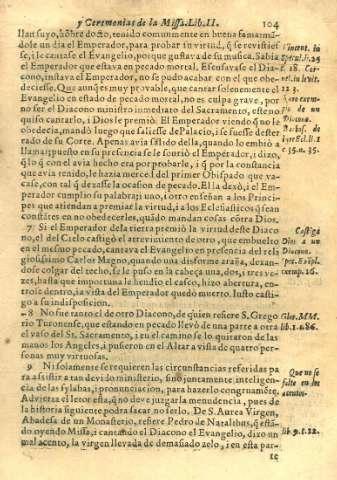 y Ceremonias de la Missa. Lib. II. 104
llan suyo, hõbre docto, tenido comunmente en buena fama mã
dole un dia el Emperador, para probar su virtud, q̃ se revistiese
se, i le cantase el Evangelio, porque gustava de su musica. Sabia
el Emperador que estava en pecado mortal. Escusavase el Dia-
cono, instava el Emperador, mas no se pudo acabar con el que obe-
deciesse. Que aunq̃ es muy provable, que cantar solenemente el
Evangelio en estado de pecado mortal, no es culpa grave, por
no ser el Diacono ministro inmediato del Sacramento, este no
quiso cantarlo, i Dios le premiò. El Emperador viendo q̃ no le
obedecia, mandò luego que saliesse de Palacio, i se fuesse dester
rado de su Corte. Apenas avia salido della, quando lo embiò a
llamar; puesto en su presencia se le sonriò el Emperador, i dixo,
q̃ lo q̃ con el avia hecho era por probarle, i q̃ por la constancia
que avia tenido, le hazia merced del primer Obispado que va-
case, con tal q̃ dexasse la ocasion de pecado. Ella dexò, i el Em-
perador cumplio su palabra; uno, i otro enseñan a los Princi-
pes que atiendan a premiar la virtud, i a los Eclesiasticos q̃ sean
constãtes en no obedecerles, quãdo mandan cosas cõtra Dios.
7 Si el Emperador de la tierra premiò la virtud deste Diaco
no, el del Cielo castigò el atrevimiento de otro, que embuelto
en el mismo pecado, cantava el Evangelio en presencia del reli
giosissimo Carlos Magno, quando una disforme araña, dexan-
dose colgar del techo, se le puso en la cabeça una, dos, i tres ve-
zes, hasta que importuna le hendio el casco, hizo abertura, en-
troie dentro, i a vista del Emperador quedò muerto. Iusto casti-
go a su indisposicion.
8 No fue tanto el de otro Diacono, de quien refiere S. Grego
rio Turonense, que estando en pecado llevò de una parte a otra
el vaso del SS. Sacramento, i en el camino se lo quitaron de las
manos los Angeles, i pusieron en el Altar a vista de quatro per-
sonas muy virtuosas.
9 Ni solamente se requieren las circunstancias referidas pa
ra assistir a tan devido ministerio, sino juntamente inteligen-
cia de las sylabas, i pronunciacion, para hazerlo congruamẽte.
Advierta el letor esta, q̃ no deve juzgarla menudencia, pues de
la historia siguiente podrà sacar no serlo. De S. Aurea Virgen,
Abadesa de un Monasterio, refiere Pedro de Natalibus, q̃ estã-
do oyendo Missa, i cantando el Diacono el Evangelio, dixo un
mal acento, la virgen llevada de demasiado zelo, i en esta par-
te
Castigò
Dios a un
Diacono.
Que no se
falte en los
acentos.